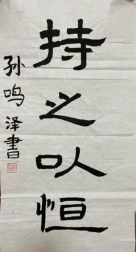 持之以恒
孙鸣泽書